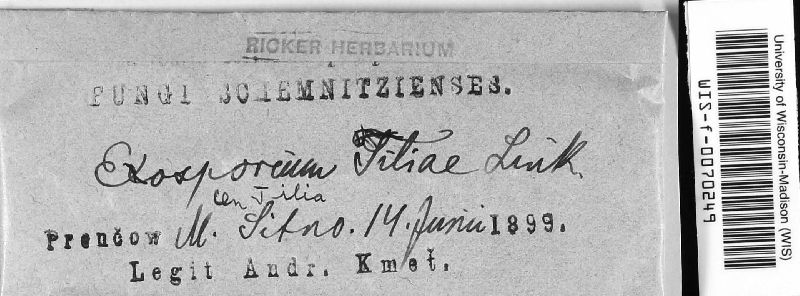 RICKER HERBARIUM
FUNGI SCHEMNITZIENSES.
Exosporium Tiliae Link.
on Tilia
Prenčow M. Sitno. 14. Junii 1899.
Legit Andr. Kmeť.
University of Wisconsin-Madison (WIS)
WIS-f-0070249